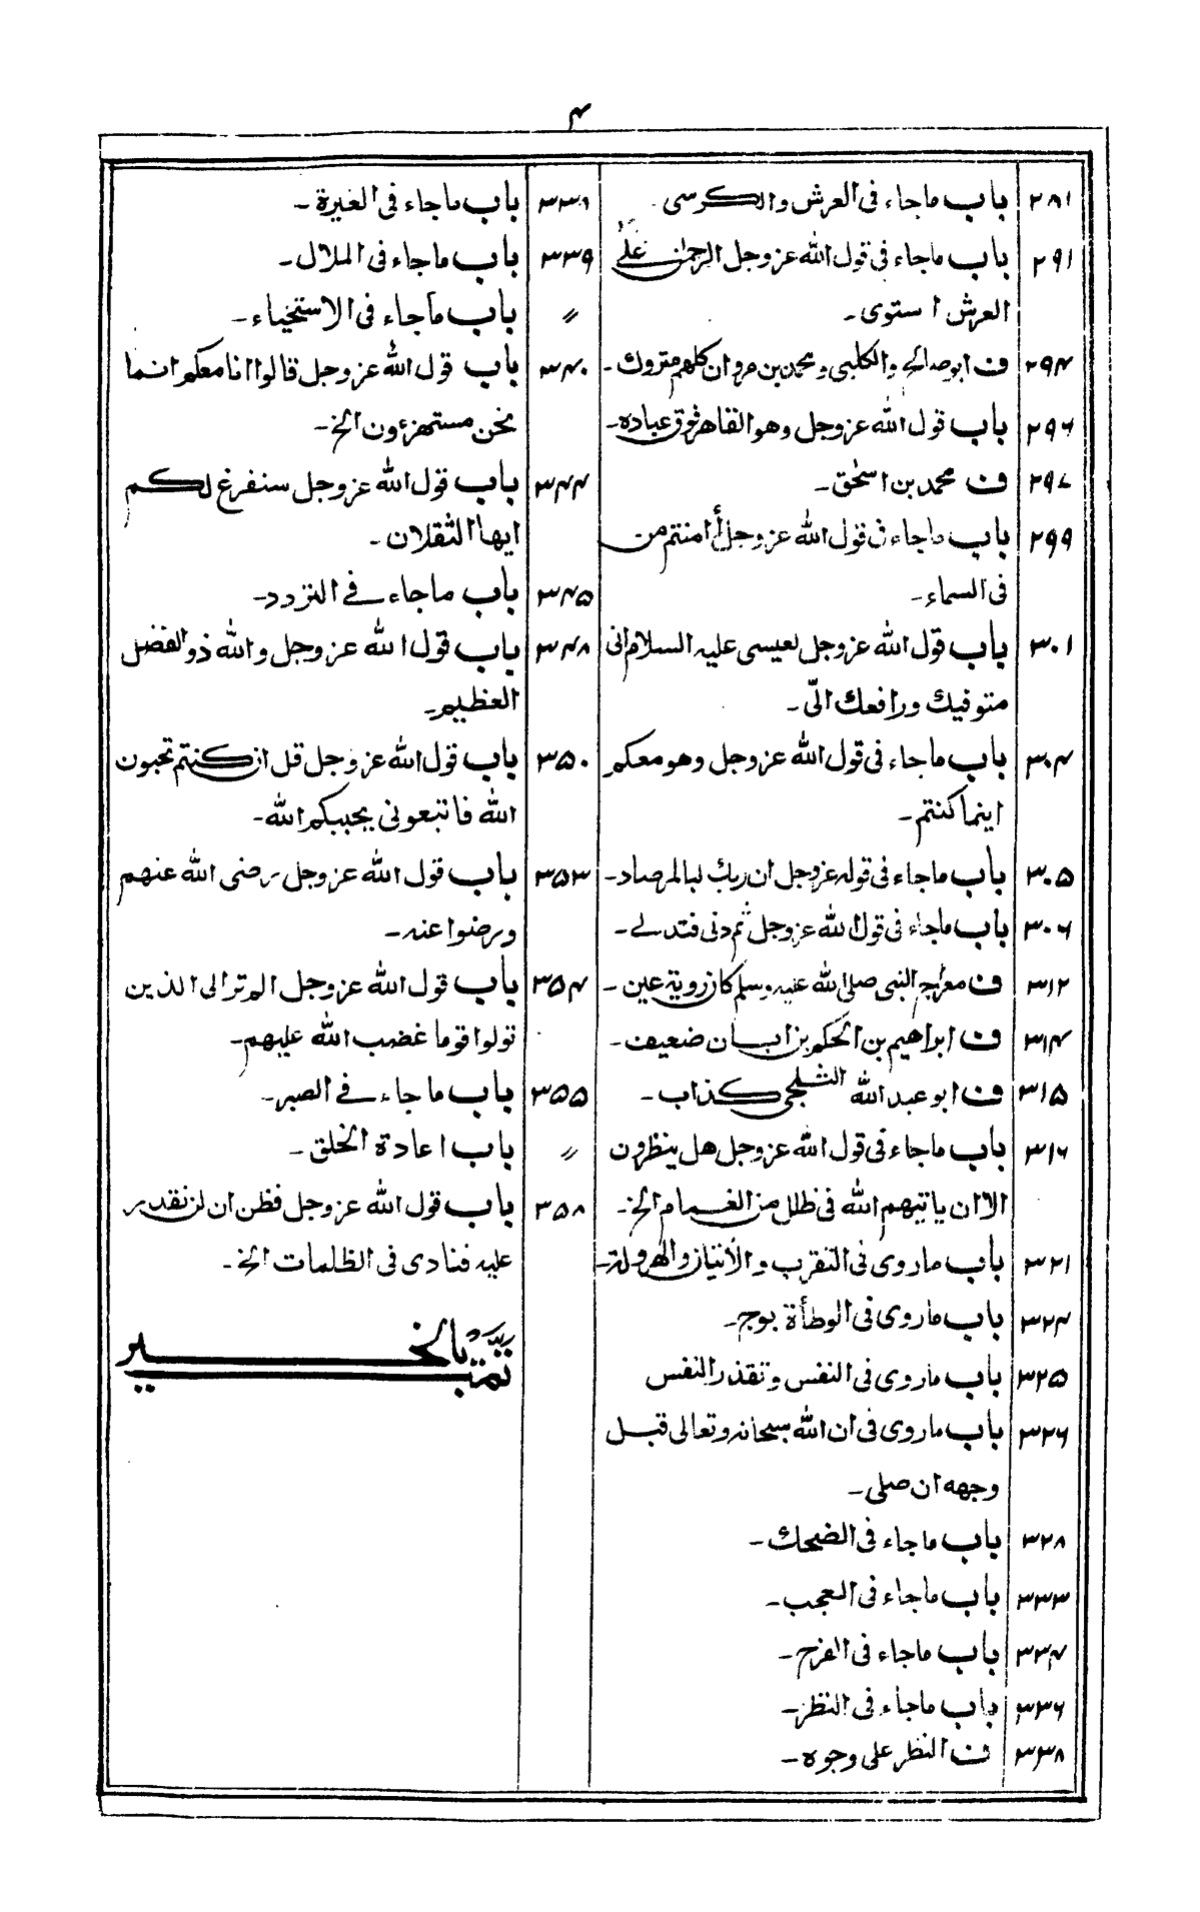 ۴
۲۸۱ باب ماجاء فی العرش والکرسی
۲۹۱ باب ماجاء فی قول الله عزوجل الرحمن علی
العرش استوی۔
۲۹۴ ف ابوصالح والکلبی ومحمد بن مروان کلهم متروك۔
۲۹۶ باب قول الله عزوجل وهو القاهر فوق عباده۔
۲۹۷ ف محمد بن اسحٰق۔
۲۹۹ باب ماجاء فی قول الله عزوجل أأمنتم من
فی السماء۔
۳۰۱ باب قول الله عزوجل لعیسی علیه السلام انی
متوفیك ورافعك الیّ۔
۳۰۴ باب ماجاء فی قول الله عزوجل وهو معکم
اینما کنتم۔
۳۰۵ باب ماجاء فی قوله عزوجل ان ربك لبالمرصاد۔
۳۰۶ باب ماجاء فی قول الله عزوجل ثم دنی فتدلے۔
۳۱۲ ف معراج النبی صلی الله علیه وسلم کان رویة عین۔
۳۱۴ ف ابراهیم بن الحکم بن ابان ضعیف۔
۳۱۵ ف ابو عبد الله الشلجی کذاب۔
۳۱۶ باب ماجاء فی قول الله عزوجل هل ینظرون
الا ان یاتیهم الله فی ظلل من الغمام الخ۔
۳۲۱ باب ماروی فی التقرب والأتیان والهرولة۔
۳۲۴ باب ماروی فی الوطأة بوج۔
۳۲۵ باب ماروی فی النفس وتقذر النفس
۳۲۶ باب ماروی فی ان الله سبحانه وتعالی قبل
وجهه ان صلی۔
۳۲۸ باب ماجاء فی الضحك۔
۳۳۳ باب ماجاء فی العجب۔
۳۳۴ باب ماجاء فی الفرح۔
۳۳۶ باب ماجاء فی النظر۔
۳۳۸ ف النظر علی وجوه۔
۳۳۸ باب ماجاء فی الغیرة۔
۳۳۹ باب ماجاء فی الملال۔
〃 باب ماجاء فی الاستحیاء۔
۳۴۰ باب قول الله عزوجل قالوا انا معکم انما
نحن مستهزءون الخ۔
۳۴۴ باب قول الله عزوجل سنفرغ لکم
ایها الثقلان۔
۳۴۵ باب ماجاء فے التردد۔
۳۴۸ باب قول الله عزوجل والله ذو الفضل
العظیم۔
۳۵۰ باب قول الله عزوجل قل ان کنتم تحبون
الله فاتبعونی یحببکم الله۔
۳۵۳ باب قول الله عزوجل رضی الله عنهم
ورضوا عنه۔
۳۵۴ باب قول الله عزوجل الم تر الی الذین
تولوا قوما غضب الله علیهم۔
۳۵۵ باب ماجاء فے الصبر۔
〃 باب اعادة الخلق۔
۳۵۸ باب قول الله عزوجل فظن ان لن نقدر
علیه فنادی فی الظلمات الخ۔
تمت بالخیر